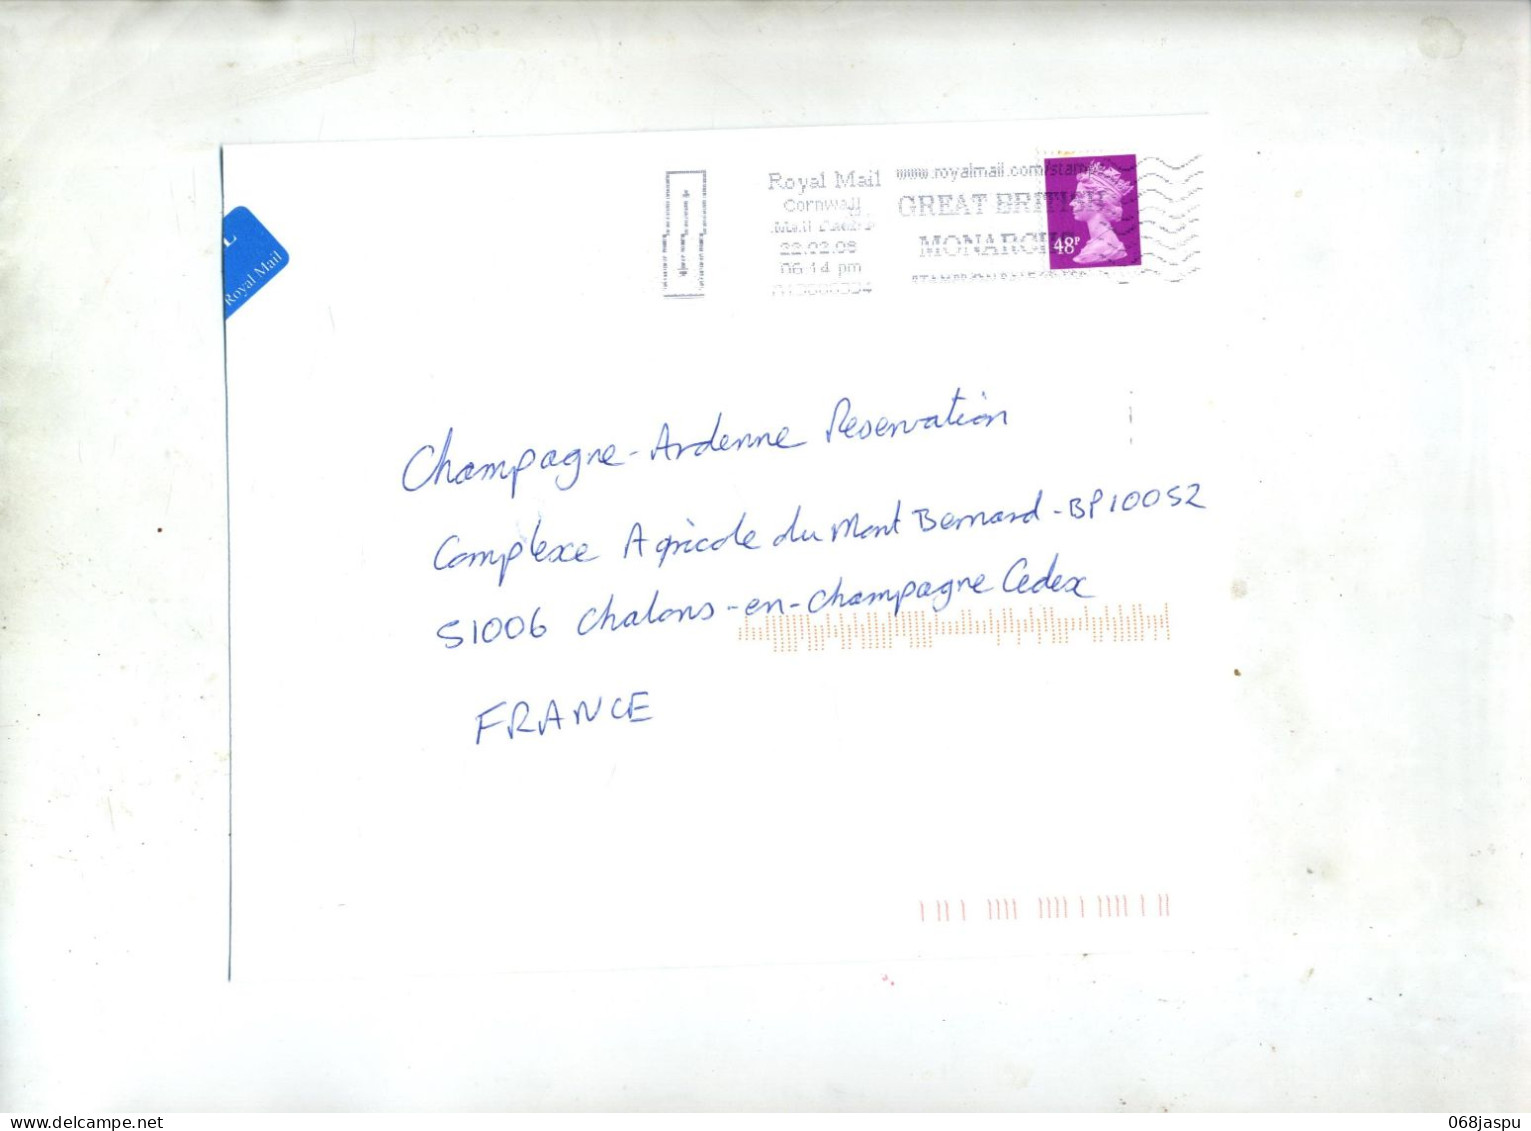 Royal Mail
Royal Mail
Cornwall
Mail Centre
22.02.08
06:14 pm
www.royalmail.com/stamps
GREAT BRITISH
MONARCHS
48P
Champagne-Ardenne Reservation
Complexe Agricole du Mont Bernard - BP10052
51006 Chalons-en-champagne Cedex
FRANCE
068jaspu